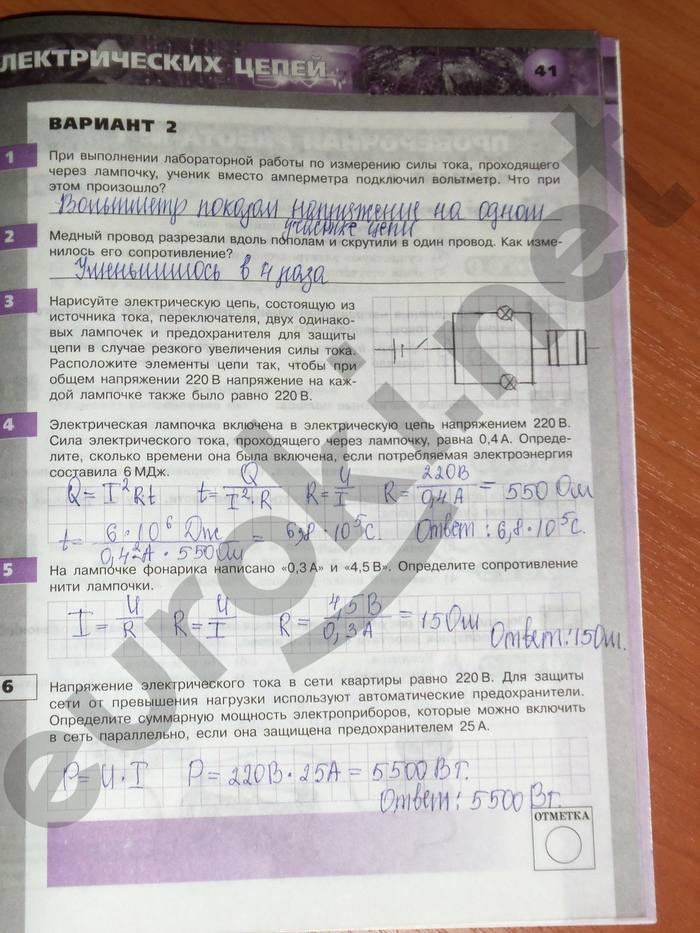 ЛЕКТРИЧЕСКИХ ЦЕПЕЙ
41
ВАРИАНТ 2
1
При выполнении лабораторной работы по измерению силы тока, проходящего
через лампочку, ученик вместо амперметра подключил вольтметр. Что при
этом произошло?
Вольтметр показал напряжение на одном
участке цепи
2
Медный провод разрезали вдоль пополам и скрутили в один провод. Как изме-
нилось его сопротивление?
Уменьшилось в 4 раза
3
Нарисуйте электрическую цепь, состоящую из
источника тока, переключателя, двух одинако-
вых лампочек и предохранителя для защиты
цепи в случае резкого увеличения силы тока.
Расположите элементы цепи так, чтобы при
общем напряжении 220 В напряжение на каж-
дой лампочке также было равно 220 В.
4
Электрическая лампочка включена в электрическую цепь напряжением 220 В.
Сила электрического тока, проходящего через лампочку, равна 0,4 А. Опреде-
лите, сколько времени она была включена, если потребляемая электроэнергия
составила 6 МДж.
Q = I²Rt t = Q / I²·R R = U / I R = 220В / 0,4 А = 550 Ом
t = 6·10⁶ Дж / 0,4²А · 550 Ом = 6,8·10⁵ с. Ответ: 6,8·10⁵ с.
5
На лампочке фонарика написано «0,3 А» и «4,5 В». Определите сопротивление
нити лампочки.
I = U / R R = U / I R = 4,5 В / 0,3 А = 15 Ом
Ответ: 15 Ом.
6
Напряжение электрического тока в сети квартиры равно 220 В. Для защиты
сети от превышения нагрузки используют автоматические предохранители.
Определите суммарную мощность электроприборов, которые можно включить
в сеть параллельно, если она защищена предохранителем 25 А.
P = U · I P = 220В · 25А = 5500 Вт.
Ответ: 5500 Вт.
ОТМЕТКА
euroki.net